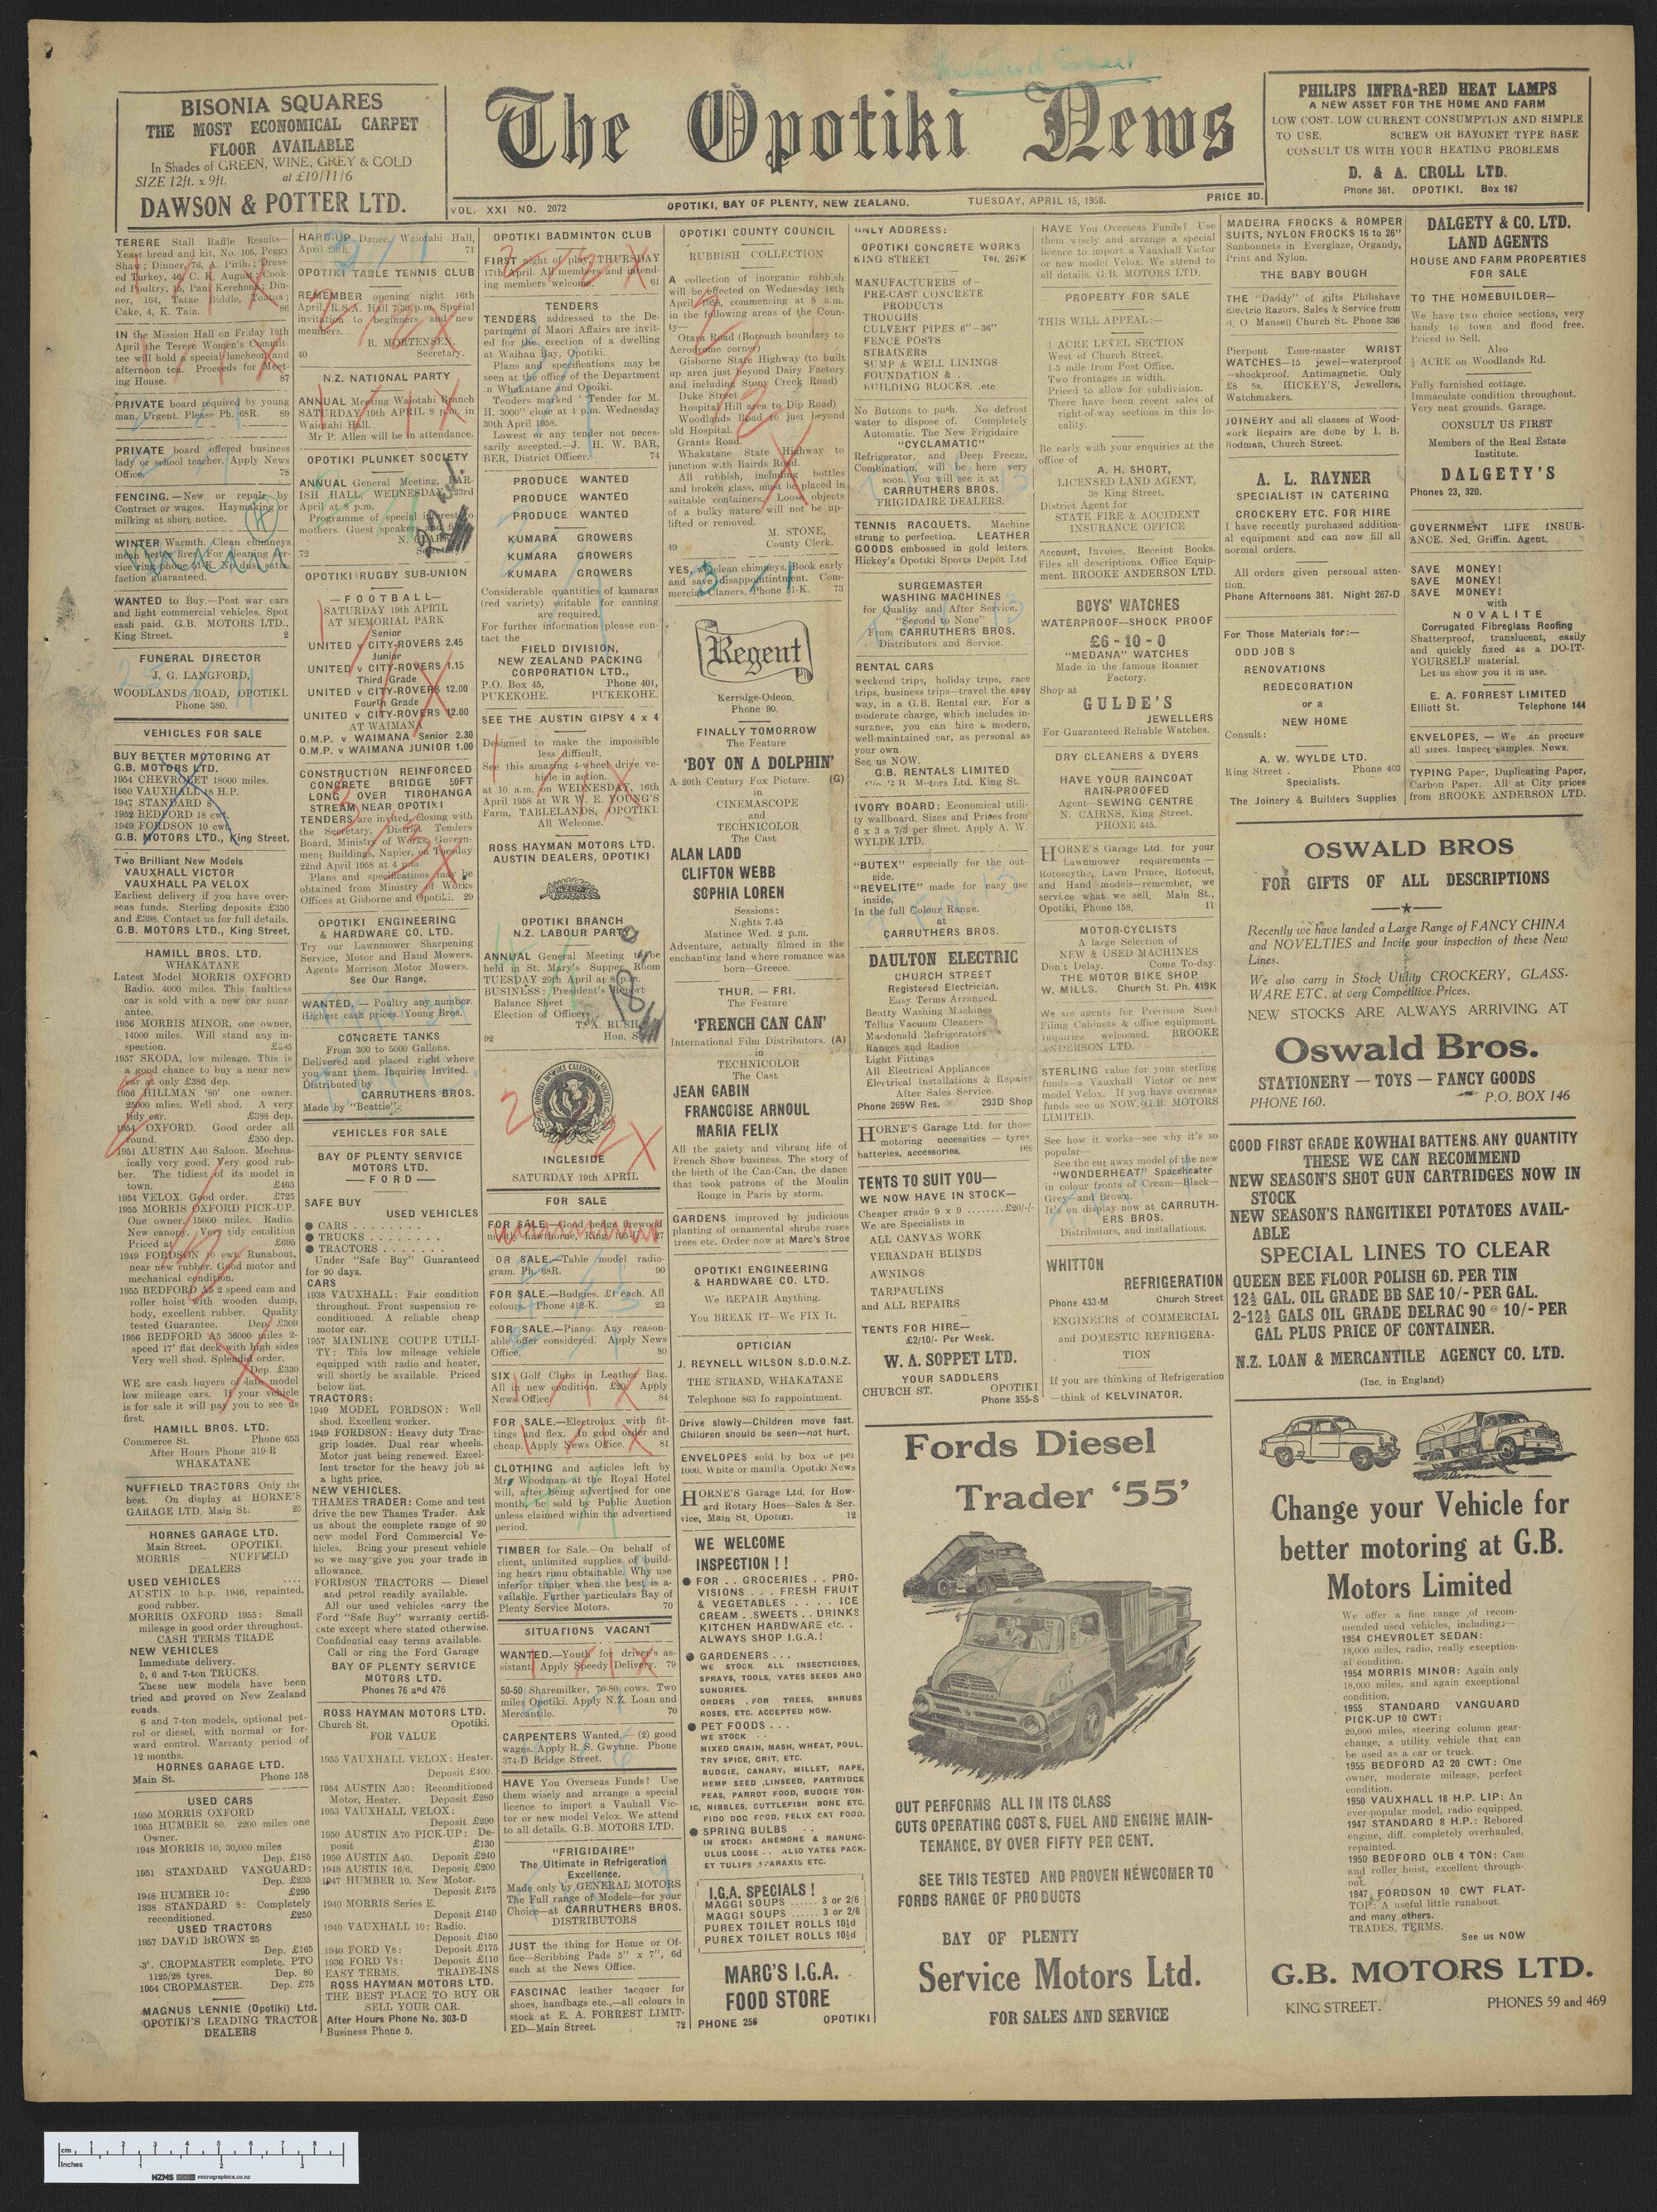 BISONIA SQUARES
THE MOST ECONOMICAL CARPET
FLOOR AVAILABLE
In Shades of GREEN, WINE, GREY & GOLD
SIZE 12ft. x 9ft. at £10/11/6
DAWSON & POTTER LTD.
The Opotiki News
VOL. XXI NO. 2072 OPOTIKI, BAY OF PLENTY, NEW ZEALAND. TUESDAY, APRIL 15, 1958. PRICE 3D.
PHILIPS INFRA-RED HEAT LAMPS
A NEW ASSET FOR THE HOME AND FARM
LOW COST. LOW CURRENT CONSUMPTION AND SIMPLE
TO USE. SCREW OR BAYONET TYPE BASE
CONSULT US WITH YOUR HEATING PROBLEMS
D. & A. CROLL LTD.
Phone 361. OPOTIKI. Box 167
TERERE Stall Raffle Results—
Yeast bread and kit, No. 105, Peggy
Shaw; Dinner, 76, A. Pirihi; Dress-
ed Turkey, 46, C. K. August; Cook-
ed Poultry, 15, Pani Kerehona; Din-
ner, 164, Tatae Biddle, Toatoa;
Cake, 4, K. Taia. 86
IN the Mission Hall on Friday 18th
April the Terere Women's Commit-
tee will hold a special luncheon and
afternoon tea. Proceeds for Meet-
ing House. 87
PRIVATE board required by young
man, Urgent. Please Ph. 68R. 89
PRIVATE board offered business
lady or school teacher. Apply News
Office. 78
FENCING.—New or repair by
Contract or wages. Haymaking or
milking at short notice.
WINTER Warmth. Clean chimneys
mean better fires. For cleaning ser-
vice ring phone 51-K. No dust, satis-
faction guaranteed.
WANTED to Buy.—Post war cars
and light commercial vehicles. Spot
cash paid. G.B. MOTORS LTD.,
King Street. 2
FUNERAL DIRECTOR
J. G. LANGFORD,
WOODLANDS ROAD, OPOTIKI.
Phone 380.
VEHICLES FOR SALE
BUY BETTER MOTORING AT
G.B. MOTORS LTD.
1954 CHEVROLET 18000 miles.
1950 VAUXHALL 18 H.P.
1947 STANDARD 8
1952 BEDFORD 18 cwt.
1949 FORDSON 10 cwt.
G.B. MOTORS LTD., King Street.
Two Brilliant New Models
VAUXHALL VICTOR
VAUXHALL PA VELOX
Earliest delivery if you have over-
seas funds. Sterling deposits £330
and £398. Contact us for full details.
G.B. MOTORS LTD., King Street.
HAMILL BROS. LTD.
WHAKATANE
Latest Model MORRIS OXFORD
Radio. 4000 miles. This faultless
car is sold with a new car guar-
antee.
1956 MORRIS MINOR, one owner,
14000 miles. Will stand any in-
spection.
1957 SKODA, low mileage. This is
a good chance to buy a near new
car at only £386 dep.
1956 HILLMAN '80' one owner.
23000 mlies. Well shod. A very
tidy car. £388 dep.
1954 OXFORD. Good order all
round. £350 dep.
1951 AUSTIN A40 Saloon. Mechna-
ically very good. Very good rub-
ber. The tidiest of its model in
town. £465
1954 VELOX. Good order. £725
1955 MORRIS OXFORD PICK-UP.
One owner, 15000 miles. Radio.
New canopy. Very tidy condition
Priced at £695
1949 FORDSON 10 cwt. Runabout,
near new rubber. Good motor and
mechanical condition.
1955 BEDFORD A5 2 speed cam and
roller hoist with wooden dump,
body, excellent rubber. Quality
tested Guarantee. Dep. £309
1956 BEDFORD A5 36000 miles 2-
speed 17' flat deck with high sides
Very well shod. Splendid order.
Dep. £330
WE are cash buyers of late model
low mileage cars. If your vehicle
is for sale it will pay you to see us
first.
HAMILL BROS. LTD.
Commerce St. Phone 653
After Hours Phone 319-R
WHAKATANE
NUFFIELD TRACTORS Only the
best. On display at HORNE'S
GARAGE LTD. Main St. 25
HORNES GARAGE LTD.
Main Street. OPOTIKI.
MORRIS — NUFFIELD
DEALERS
USED VEHICLES ....
AUSTIN 10 h.p. 1946, repainted,
good rubber.
MORRIS OXFORD 1955: Small
mileage in good order throughout.
CASH TERMS TRADE
NEW VEHICLES
Immediate delivery.
5, 6 and 7-ton TRUCKS.
These new models have been
tried and proved on New Zealand
roads.
6 and 7-ton models, optional pet-
rol or diesel, with normal or for-
ward control. Warranty period of
12 months.
HORNES GARAGE LTD.
Main St. Phone 158
USED CARS
1950 MORRIS OXFORD
1955 HUMBER 80. 2200 miles one
Owner.
1948 MORRIS 10, 30,000 miles
Dep. £185
1951 STANDARD VANGUARD:
Dep. £235
1948 HUMBER 10: £295
1938 STANDARD 8: Completely
reconditioned. £250
USED TRACTORS
1957 DAVID BROWN 25
Dep. £165
-3'. CROPMASTER complete, PTO
1125/28 tyres. Dep. 80
1954 CROPMASTER. Dep. £75
MAGNUS LENNIE (Opotiki) Ltd.
OPOTIKI'S LEADING TRACTOR
DEALERS
HARD-UP Dance, Waiotahi Hall,
April 26th. 71
OPOTIKI TABLE TENNIS CLUB
REMEMBER opening night 16th
April, R.S.A. Hall 7.30 p.m. Special
invitation to beginners and new
members.
B. MORTENSEN,
40 Secretary.
N.Z. NATIONAL PARTY
ANNUAL Meeting Waiotahi Branch
SATURDAY 19th APRIL 8 p.m. in
Waiotahi Hall.
Mr P. Allen will be in attendance.
OPOTIKI PLUNKET SOCIETY
ANNUAL General Meeting, PAR-
ISH HALL, WEDNESDAY, 23rd
April at 8 p.m.
Programme of special interest to
mothers. Guest speaker and film
72
OPOTIKI RUGBY SUB-UNION
—FOOTBALL—
SATURDAY 19th APRIL
AT MEMORIAL PARK
Senior
UNITED v CITY-ROVERS 2.45
Junior
UNITED v CITY-ROVERS 1.15
Third Grade
UNITED v CITY-ROVERS 12.00
Fourth Grade
UNITED v CITY-ROVERS 12.00
AT WAIMANA
O.M.P. v WAIMANA Senior 2.30
O.M.P. v WAIMANA JUNIOR 1.00
CONSTRUCTION REINFORCED
CONCRETE BRIDGE 50FT
LONG OVER TIROHANGA
STREAM NEAR OPOTIKI
TENDERS are invited, closing with
the Secretary, District Tenders
Board, Ministry of Works, Govern-
ment Buildings, Napier, on Tuesday
22nd April 1958 at 4 p.m.
Plans and specifications may be
obtained from Ministry of Works
Offices at Gisborne and Opotiki. 29
OPOTIKI ENGINEERING
& HARDWARE CO. LTD.
Try our Lawnmower Sharpening
Service, Motor and Hand Mowers.
Agents Morrison Motor Mowers.
See Our Range.
WANTED. — Poultry any number.
Highest cash prices. Young Bros.
CONCRETE TANKS
From 300 to 5000 Gallons.
Delivered and placed right where
you want them. Inquiries Invited.
Distributed by
CARRUTHERS BROS.
Made by "Beattie".
VEHICLES FOR SALE
BAY OF PLENTY SERVICE
MOTORS LTD.
— FORD —
SAFE BUY
USED VEHICLES
● CARS ........
● TRUCKS ........
● TRACTORS ......
Under "Safe Buy" Guaranteed
for 90 days.
CARS
1938 VAUXHALL: Fair condition
throughout. Front suspension re-
conditioned. A reliable cheap
motor car.
1957 MAINLINE COUPE UTILI-
TY: This low mileage vehicle
equipped with radio and heater,
will shortly be available. Priced
below list.
TRACTORS:
1949 MODEL FORDSON: Well
shod. Excellent worker.
1949 FORDSON: Heavy duty Trac-
grip loader. Dual rear wheels.
Motor just being renewed. Excel-
lent tractor for the heavy job at
a light price.
NEW VEHICLES.
THAMES TRADER: Come and test
drive the new Thames Trader. Ask
us about the complete range of 20
new model Ford Commercial Ve-
hicles. Bring your present vehicle
so we may give you your trade in
allowance.
FORDSON TRACTORS — Diesel
and petrol readily available.
All our used vehicles carry the
Ford "Safe Buy" warranty certifi-
cate except where stated otherwise.
Confidential easy terms available.
Call or ring the Ford Garage
BAY OF PLENTY SERVICE
MOTORS LTD.
Phones 76 and 476
ROSS HAYMAN MOTORS LTD.
Church St. Opotiki.
FOR VALUE
1955 VAUXHALL VELOX: Heater.
Deposit £400.
1954 AUSTIN A30: Reconditioned
Motor, Heater. Deposit £280
1953 VAUXHALL VELOX:
Deposit £290
1950 AUSTIN A70 PICK-UP: De-
posit £130
1950 AUSTIN A40. Deposit £240
1948 AUSTIN 16/6. Deposit £200
1947 HUMBER 10. New Motor.
Deposit £175
1940 MORRIS Series E.
Deposit £140
1940 VAUXHALL 10: Radio.
Deposit £150
1940 FORD V8: Deposit £175
1936 FORD V8: Deposit £110
EASY TERMS. TRADE-INS
ROSS HAYMAN MOTORS LTD.
THE BEST PLACE TO BUY OR
SELL YOUR CAR.
After Hours Phone No. 303-D
Business Phone 5.
OPOTIKI BADMINTON CLUB
FIRST night of play THURSDAY
17th April. All members and intend-
ing members welcome. 61
TENDERS
TENDERS addressed to the De-
partment of Maori Affairs are invit-
ed for the erection of a dwelling
at Waihau Bay, Opotiki.
Plans and specifications may be
seen at the office of the Department
in Whakatane and Opoiki.
Tenders marked "Tender for M.
H. 3000" close at 4 p.m. Wednesday
30th April 1958.
Lowest or any tender not neces-
sarily accepted.—J. H. W. BAR-
BER, District Officer. 74
PRODUCE WANTED
PRODUCE WANTED
PRODUCE WANTED
KUMARA GROWERS
KUMARA GROWERS
KUMARA GROWERS
Considerable quantities of kumaras
(red variety) suitable for canning
are required.
For further information please con-
tact the
FIELD DIVISION,
NEW ZEALAND PACKING
CORPORATION LTD.,
P.O. Box 45, Phone 401,
PUKEKOHE. PUKEKOHE.
SEE THE AUSTIN GIPSY 4 x 4
Designed to make the impossible
less difficult.
See this amazing 4-wheel drive ve-
hicle in action.
at 10 a.m. on WEDNESDAY, 16th
April 1958 at WR W. E. YOUNG'S
Farm, TABLELANDS, OPOTIKI.
All Welcome.
ROSS HAYMAN MOTORS LTD.
AUSTIN DEALERS, OPOTIKI
OPOTIKI BRANCH
N.Z. LABOUR PARTY
ANNUAL General Meeting to be
held in St. Mary's Supper Room
TUESDAY 29th April at 8 p.m.
BUSINESS: President's Report
Balance Sheet
Election of Officers
T. A. RUSH,
92 Hon.
OPOTIKI CALEDONIAN SOCIETY
INGLESIDE
SATURDAY 19th APRIL
FOR SALE
FOR SALE.—Good hedge firewood
27
OR SALE.—Table model radio
gram. Ph. 68R. 90
FOR SALE.—Budgies. £1 each. All
colours. Phone 412-K. 23
FOR SALE.—Piano. Any reason-
able offer considered. Apply News
Office. 80
SIX Golf Clubs in Leather Bag.
All in new condition. £20. Apply
News Office. 84
FOR SALE.—Electrolux with fit-
tings and flex. In good order and
cheap. Apply News Office. 81
CLOTHING and articles left by
Mr. Woodman at the Royal Hotel
will, after being advertised for one
month, be sold by Public Auction
unless claimed within the advertised
period.
TIMBER for Sale.—On behalf of
client, unlimited supplies of build-
ing heart rimu obtainable. Why use
inferior timber when the best is a-
vailable. Further particulars Bay of
Plenty Service Motors. 70
SITUATIONS VACANT
WANTED.—Youth for driver's as-
sistant. Apply Speedy Delivery. 79
50-50 Sharemilker, 70-80 cows. Two
miles Opotiki. Apply N.Z. Loan and
Mercantile. 70
CARPENTERS Wanted. — (2) good
wages. Apply R. S. Gwynne. Phone
374-D Bridge Street.
HAVE You Overseas Funds? Use
them wisely and arrange a special
licence to import a Vauhall Vic-
tor or new model Velox. We attend
to all details. G.B. MOTORS LTD.
"FRIGIDAIRE"
The Ultimate in Refrigeration
Excellence.
Made only by GENERAL MOTORS
The Full range of Models—for your
Choice—at CARRUTHERS BROS.
DISTRIBUTORS
JUST the thing for Home or Of-
fice—Scribbing Pads 5" x 7", 6d
each at the News Office.
FASCINAC leather lacquer for
shoes, handbags etc.,—all colours in
stock at E. A. FORREST LIMIT-
ED—Main Street. 72
OPOTIKI COUNTY COUNCIL
RUBBISH COLLECTION
A collection of inorganic rubbish
will be effected on Wednesday 16th
April 1958, commencing at 8 a.m.
in the following areas of the Coun-
ty—
Otara Road (Borough boundary to
Aerodrome corner)
Gisborne State Highway (to built
up area just beyond Dairy Factory
and including Stony Creek Road)
Duke Street
Hospital Hill area to Dip Road)
Woodlands Road to just beyond
old Hospital.
Grants Road.
Whakatane State Highway to
junction with Bairds Road.
All rubbish, including bottles
and broken glass, must be placed in
suitable containers. Loose objects
of a bulky nature will not be up-
lifted or removed.
M. STONE,
49 County Clerk.
YES, we clean chimneys. Book early
and save disappointintment. Com-
mercial Claners. Phone 51-K. 73
Regent
Kerridge-Odeon.
Phone 90.
FINALLY TOMORROW
The Feature
'BOY ON A DOLPHIN'
A 20th Century Fox Picture. (G)
in
CINEMASCOPE
and
TECHNICOLOR
The Cast
ALAN LADD
CLIFTON WEBB
SOPHIA LOREN
Sessions:
Nights 7.45
Matinee Wed. 2 p.m.
Adventure, actually filmed in the
enchanting land where romance was
born—Greece.
THUR. — FRI.
The Feature
'FRENCH CAN CAN'
International Film Distributors. (A)
in
TECHNICOLOR
The Cast
JEAN GABIN
FRANCOISE ARNOUL
MARIA FELIX
All the gaiety and vibrant life of
French Show business. The story of
the birth of the Can-Can, the dance
that took patrons of the Moulin
Rouge in Paris by storm.
GARDENS improved by judicious
planting of ornamental shrubs roses
trees etc. Order now at Marc's Stroe
OPOTIKI ENGINEERING
& HARDWARE CO. LTD.
We REPAIR Anything.
You BREAK IT—We FIX It.
OPTICIAN
J. REYNELL WILSON S.D.O.N.Z.
THE STRAND, WHAKATANE
Telephone 863 fo rappointment.
Drive slowly—Children move fast.
Children should be seen—not hurt.
ENVELOPES sold by box or per
1000. White or manilla. Opotiki News
HORNE'S Garage Ltd. for How-
ard Rotary Hoes—Sales & Ser-
vice, Main St. Opotiki. 12
WE WELCOME
INSPECTION ! !
● FOR .. GROCERIES .. PRO-
VISIONS ... FRESH FRUIT
& VEGETABLES .... ICE
CREAM .. SWEETS .. DRINKS
KITCHEN HARDWARE etc. .
ALWAYS SHOP I.G.A.!
● GARDENERS ...
WE STOCK ALL INSECTICIDES,
SPRAYS, TOOLS, YATES SEEDS AND
SUNDRIES.
ORDERS . FOR TREES, SHRUBS
ROSES, ETC. ACCEPTED NOW.
● PET FOODS ...
WE STOCK ..
MIXED GRAIN, MASH, WHEAT, POUL.
TRY SPICE, GRIT, ETC.
BUDGIE, CANARY, MILLET, RAPE,
HEMP SEED ,LINSEED, PARTRIDGE
PEAS, PARROT FOOD, BUDGIE TON-
IC, NIBBLES, CUTTLEFISH BONE ETC.
FIDO DOG FOOD, FELIX CAT FOOD.
● SPRING BULBS ..
IN STOCK: ANEMONE & RANUNC-
ULUS LOOSE .. ALSO YATES PACK-
ET TULIPS ,SPARAXIS ETC.
I.G.A. SPECIALS !
MAGGI SOUPS ...... 3 or 2/6
MAGGI SOUPS ...... 3 or 2/6
PUREX TOILET ROLLS 10½d
PUREX TOILET ROLLS 10½d
MARC'S I.G.A.
FOOD STORE
PHONE 256 OPOTIKI
ONLY ADDRESS:
OPOTIKI CONCRETE WORKS
KING STREET Tel. 267K
MANUFACTURERS of—
PRE-CAST CONCRETE
PRODUCTS
TROUGHS
CULVERT PIPES 6"—36"
FENCE POSTS
STRAINERS
SUMP & WELL LININGS
FOUNDATION & .
BUILDING BLOCKS. .etc
No Buttons to push. No defrost
water to dispose of. Completely
Automatic. The New Frigidaire
"CYCLAMATIC"
Refrigerator, and Deep Freeze,
Combination, will be here very
soon. You will see it at
CARRUTHERS BROS.
FRIGIDAIRE DEALERS.
TENNIS RACQUETS. Machine
strung to perfection. LEATHER
GOODS embossed in gold letters.
Hickey's Opotiki Sports Depot Ltd
SURGEMASTER
WASHING MACHINES
for Quality and After Service.
"Second to None"
From CARRUTHERS BROS.
Distributors and Service.
RENTAL CARS
weekend trips, holiday trips, race
trips, business trips—travel the easy
way, in a G.B. Rental car. For a
moderate charge, which includes in-
surance, you can hire a modern,
well-maintained car, as personal as
your own
See us NOW.
G.B. RENTALS LIMITED
C/o. G.B. Motors Ltd. King St.
IVORY BOARD: Economical utili-
ty wallboard. Sizes and Prises from
6 x 3 a 7/3 per sheet. Apply A. W.
WYLDE LTD.
"BUTEX" especially for the out-
side.
"REVELITE" made for easy use
inside,
In the full Colour Range.
at
CARRUTHERS BROS.
DAULTON ELECTRIC
CHURCH STREET
Registered Electrician.
Easy Terms Arranged.
Beatty Washing Machines
Tellus Vacuum Cleaners
Macdonald Refrigerators
Ranges and Radios
Light Fittings
All Electrical Appliances
Electrical Installations & Repairs
After Sales Service.
Phone 269W Res. 293D Shop
HORNE'S Garage Ltd. for those
motoring necessities — tyres,
batteries, accessories.
TENTS TO SUIT YOU—
WE NOW HAVE IN STOCK—
Cheaper grade 9 x 9 ........£20/-/-
We are Specialists in
ALL CANVAS WORK
VERANDAH BLINDS
AWNINGS
TARPAULINS
and ALL REPAIRS
TENTS FOR HIRE—
£2/10/- Per Week.
W. A. SOPPET LTD.
YOUR SADDLERS
CHURCH ST. OPOTIKI
Phone 355-S
HAVE You Overseas Funds? Use
them wisely and arrange a special
licence to import a Vauxhall Victor
or new model Velox. We attend to
all details. G.B. MOTORS LTD.
PROPERTY FOR SALE
THIS WILL APPEAL:—
1 ACRE LEVEL SECTION
West of Church Street.
1-3 mile from Post Office.
Two frontages in width.
Priced to allow for subdivision.
There have been recent sales of
right-of-way sections in this lo-
cality.
Be early with your enquiries at the
office of
A. H. SHORT,
LICENSED LAND AGENT,
38 King Street.
District Agent for
STATE FIRE & ACCIDENT
INSURANCE OFFICE
Account, Invoice, Receipt Books.
Files all descriptions. Office Equip-
ment. BROOKE ANDERSON LTD.
BOYS' WATCHES
WATERPROOF—SHOCK PROOF
£6 - 10 - 0
"MEDANA" WATCHES
Made in the famous Roamer
Factory.
Shop at
GULDE'S
JEWELLERS
For Guaranteed Reliable Watches.
DRY CLEANERS & DYERS
HAVE YOUR RAINCOAT
RAIN-PROOFED
Agent—SEWING CENTRE
N. CAIRNS, King Street.
PHONE 445.
HORNE'S Garage Ltd. for your
Lawnmower requirements —
Rotoscythe, Lawn Prince, Rotocut,
and Hand models—remember, we
service what we sell. Main St.,
Opotiki, Phone 158. 11
MOTOR-CYCLISTS
A large Selection of
NEW & USED MACHINES
Don't Delay. Come To-day.
THE MOTOR BIKE SHOP
W. MILLS. Church St. Ph. 419K
We are agents for Precision Steel
Filing Cabinets & office equipment.
Inquiries welcomed. BROOKE
ANDERSON LTD.
STERLING value for your sterling
funds—a Vauxhall Victor or new
model Velox. If you have overseas
funds see us NOW. G.B. MOTORS
LIMITED.
See how it works—see why it's so
popular—
See the cut away model of the new
"WONDERHEAT" Spaceheater
in colour fronts of Cream—Black—
Grey—and Brown.
It's on display now at CARRUTH-
ERS BROS.
Distributors, and installations.
WHITTON
REFRIGERATION
Phone 433-M Church Street
ENGINEERS of COMMERCIAL
and DOMESTIC REFRIGERA-
TION
If you are thinking of Refrigeration
—think of KELVINATOR.
Fords Diesel
Trader '55'
OUT PERFORMS ALL IN ITS CLASS
CUTS OPERATING COSTS, FUEL AND ENGINE MAIN-
TENANCE, BY OVER FIFTY PER CENT.
SEE THIS TESTED AND PROVEN NEWCOMER TO
FORDS RANGE OF PRODUCTS
BAY OF PLENTY
Service Motors Ltd.
FOR SALES AND SERVICE
MADEIRA FROCKS & ROMPER
SUITS, NYLON FROCKS 16 to 26"
Sunbonnets in Everglaze, Organdy,
Print and Nylon.
THE BABY BOUGH
THE "Daddy" of gifts Philishave
Electric Razors. Sales & Service from
J. O Mansell Church St. Phone 336
Pierpont Time-master WRIST
WATCHES—15 jewel—waterproof
—shockproof. Antimagnetic. Only
£8 5s. HICKEY'S, Jewellers,
Watchmakers.
JOINERY and all classes of Wood-
work Repairs are done by I. B.
Rodman, Church Street.
A. L. RAYNER
SPECIALIST IN CATERING
CROCKERY ETC. FOR HIRE
I have recently purchased addition-
al equipment and can now fill all
normal orders.
All orders given personal atten-
tion.
Phone Afternoons 381. Night 267-D
For Those Materials for:—
ODD JOBS
RENOVATIONS
REDECORATION
or a
NEW HOME
Consult:
A. W. WYLDE LTD.
King Street . Phone 403
Specialists.
The Joinery & Builders Supplies
DALGETY & CO. LTD.
LAND AGENTS
HOUSE AND FARM PROPERTIES
FOR SALE
TO THE HOMEBUILDER—
We have two choice sections, very
handy to town and flood free.
Priced to Sell.
Also
¼ ACRE on Woodlands Rd.
Fully furnished cottage.
Immaculate condition throughout.
Very neat grounds. Garage.
CONSULT US FIRST
Members of the Real Estate
Institute.
DALGETY'S
Phones 23, 320.
GOVERNMENT LIFE INSUR-
ANCE. Ned. Griffin. Agent.
SAVE MONEY!
SAVE MONEY!
SAVE MONEY!
with
NOVALITE
Corrugated Fibreglass Roofing
Shatterproof, translucent, easily
and quickly fixed as a DO-IT-
YOURSELF material.
Let us show you it in use.
E. A. FORREST LIMITED
Elliott St. Telephone 144
ENVELOPES. — We can procure
all sizes. Inspect samples. News.
TYPING Paper, Duplicating Paper,
Carbon Paper. All at City prices
from BROOKE ANDERSON LTD.
OSWALD BROS
FOR GIFTS OF ALL DESCRIPTIONS
Recently we have landed a Large Range of FANCY CHINA
and NOVELTIES and Invite your inspection of these New
Lines.
We also carry in Stock Utility CROCKERY, GLASS-
WARE ETC. at very Competitive Prices.
NEW STOCKS ARE ALWAYS ARRIVING AT
Oswald Bros.
STATIONERY — TOYS — FANCY GOODS
PHONE 160. P.O. BOX 146
GOOD FIRST GRADE KOWHAI BATTENS. ANY QUANTITY
THESE WE CAN RECOMMEND
NEW SEASON'S SHOT GUN CARTRIDGES NOW IN
STOCK
NEW SEASON'S RANGITIKEI POTATOES AVAIL-
ABLE
SPECIAL LINES TO CLEAR
QUEEN BEE FLOOR POLISH 6D. PER TIN
12½ GAL. OIL GRADE BB SAE 10/- PER GAL.
2-12½ GALS OIL GRADE DELRAC 90 @ 10/- PER
GAL PLUS PRICE OF CONTAINER.
N.Z. LOAN & MERCANTILE AGENCY CO. LTD.
(Inc. in England)
Change your Vehicle for
better motoring at G.B.
Motors Limited
We offer a fine range of recom-
mended used vehicles, including:—
1954 CHEVROLET SEDAN:
18,000 miles, radio, really exception-
al condition.
1954 MORRIS MINOR: Again only
18,000 miles, and again exceptional
condition.
1955 STANDARD VANGUARD
PICK-UP 10 CWT:
20,000 miles, steering column gear-
change, a utility vehicle that can
be used as a car or truck.
1955 BEDFORD A2 20 CWT: One
owner, moderate mileage, perfect
condition.
1950 VAUXHALL 18 H.P. LIP: An
ever-popular model, radio equipped.
1947 STANDARD 8 H.P.: Rebored
engine, diff. completely overhauled,
repainted.
1950 BEDFORD OLB 4 TON: Cam
and roller hoist, excellent through-
out.
1947 FORDSON 10 CWT FLAT-
TOP: A useful little runabout.
and many others.
TRADES, TERMS.
See us NOW
G.B. MOTORS LTD.
KING STREET. PHONES 59 and 469
cm 1 2 3 4 5 6 7 8
Inches 1 2 3
NZMS micrographics.co.nz